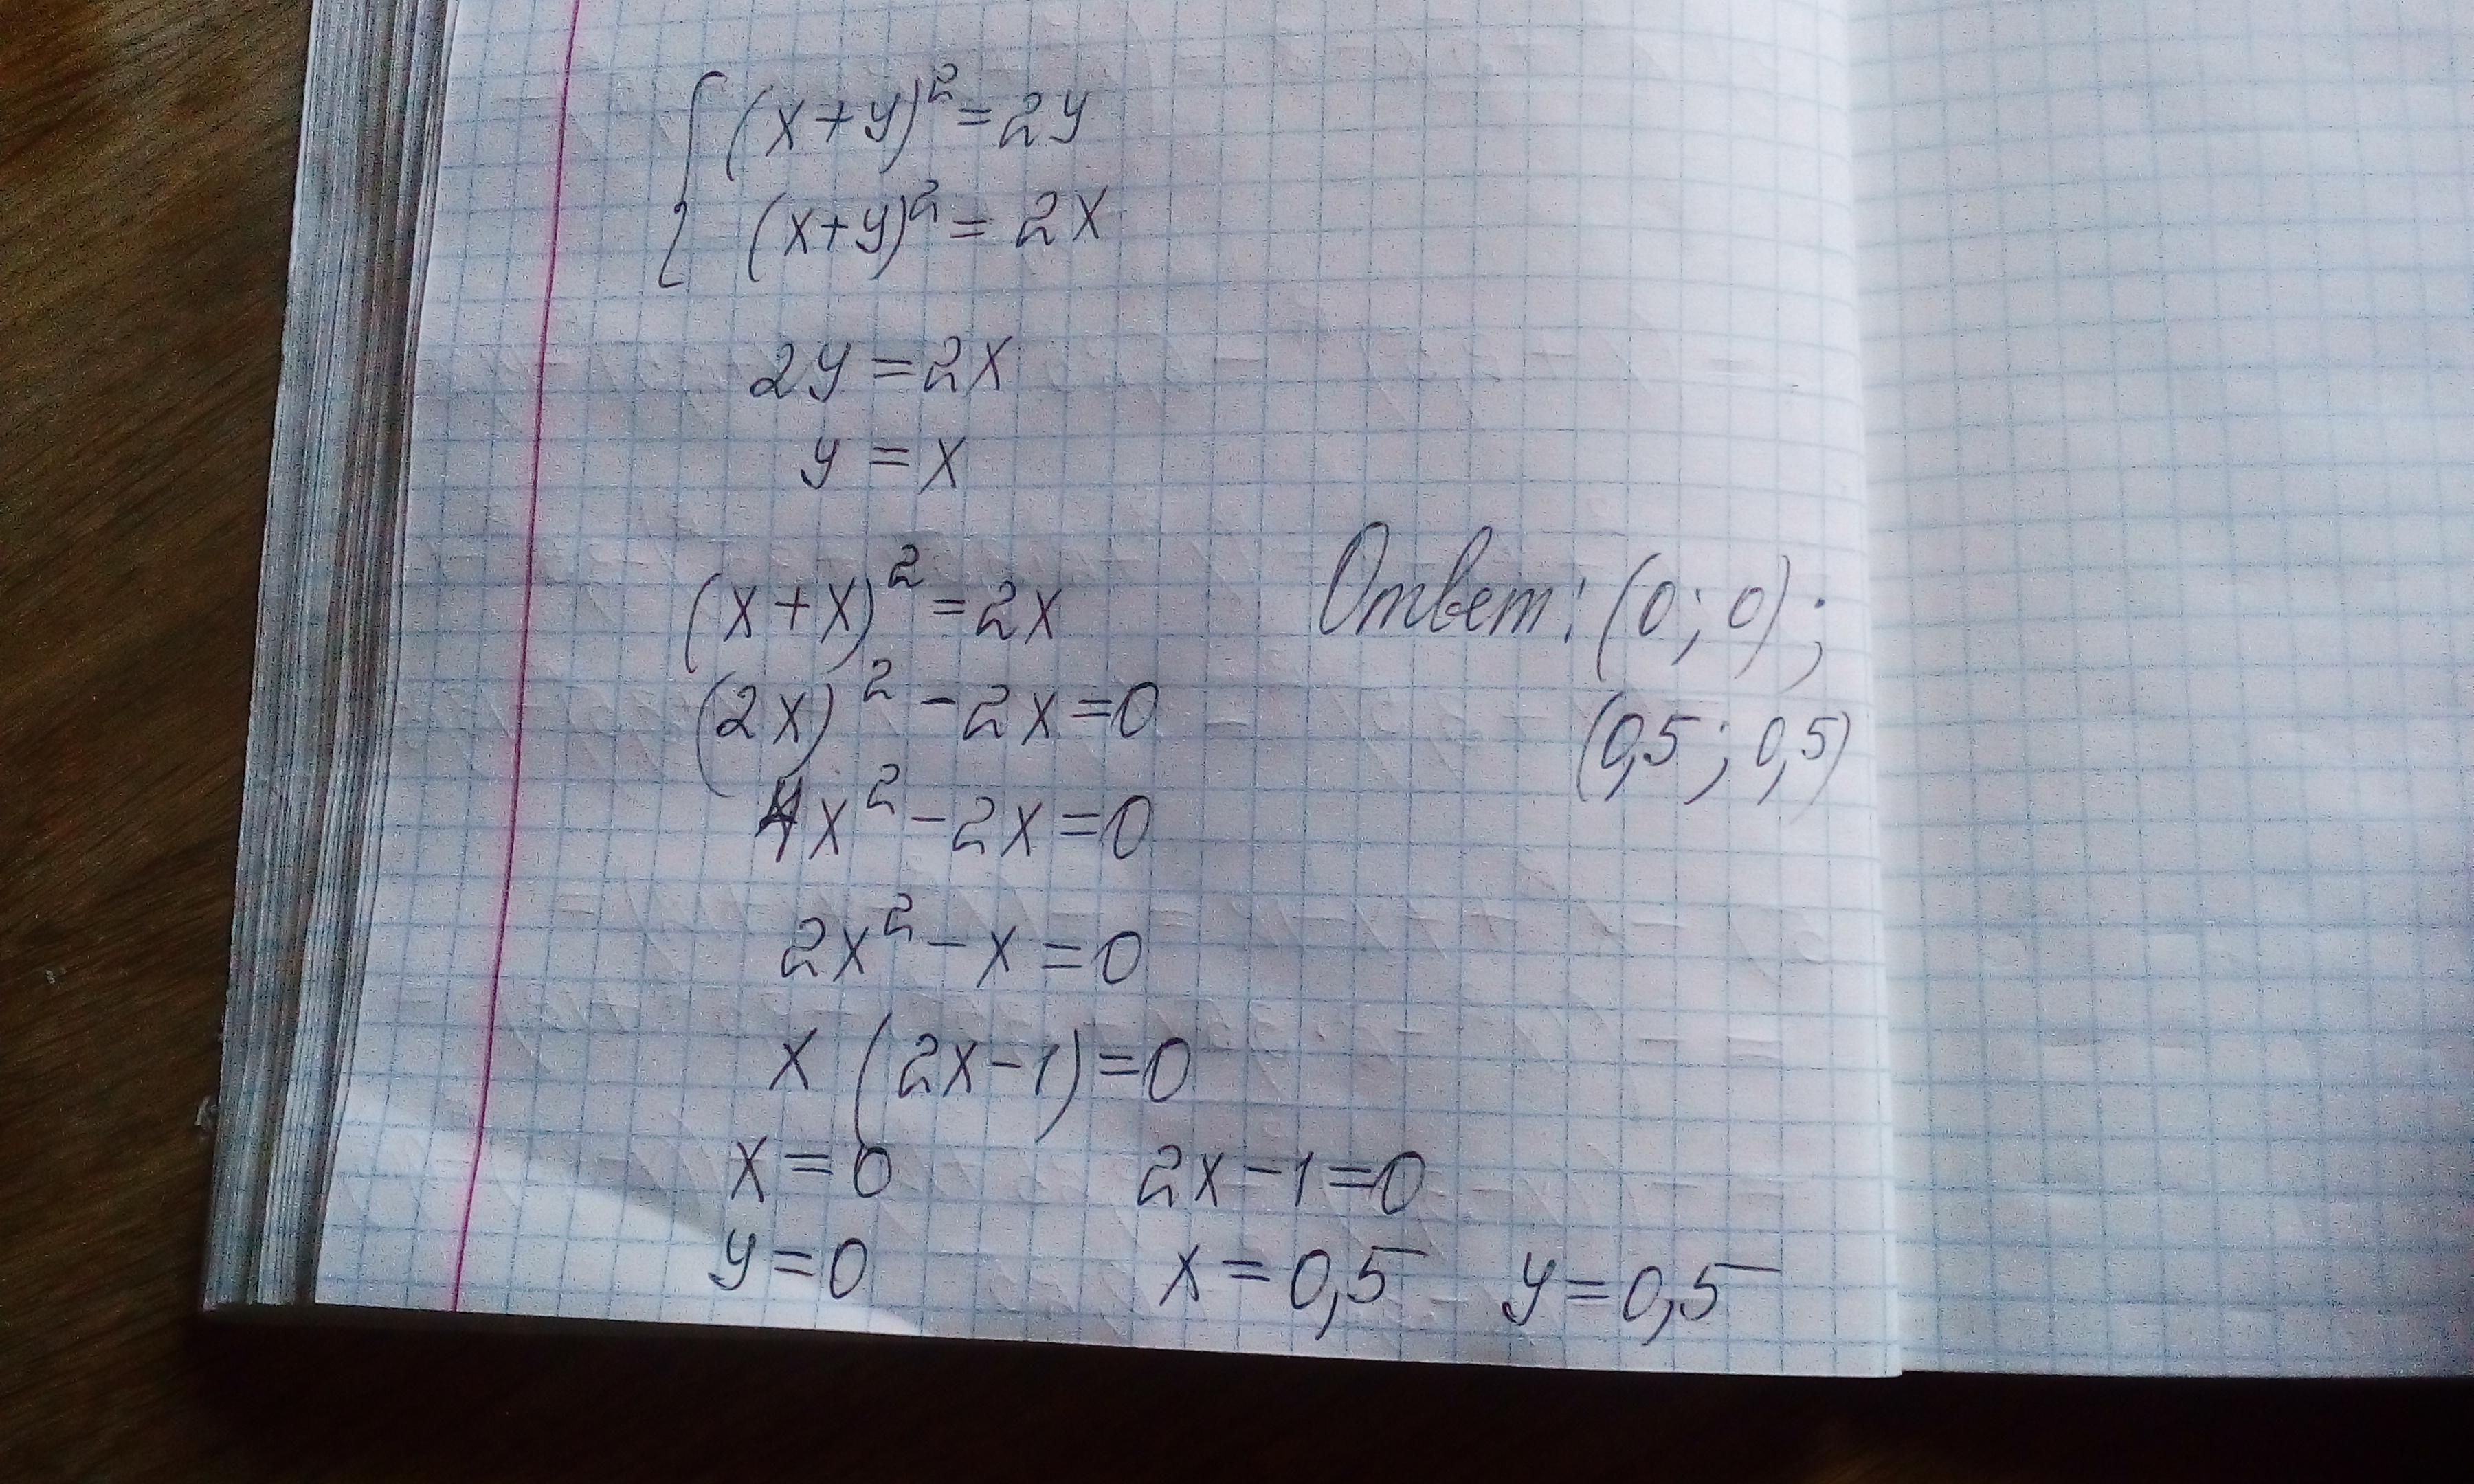 (x+y)²=2y
(x+y)²=2x
2y=2x
y=x
(x+x)²=2x
(2x)²-2x=0
4x²-2x=0
2x²-x=0
x(2x-1)=0
x=0 2x-1=0
y=0 x=0,5 y=0,5
Ответ: (0;0);
(0,5;0,5)